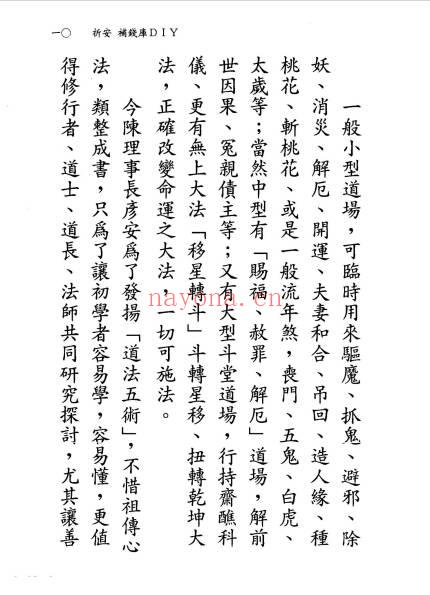 一〇　祈安 補錢庫DIY
一般小型道場，可臨時用來驅魔、抓鬼、避邪、除
妖、消災、解厄、開運、夫妻和合、吊回、造人緣、種
桃花、斬桃花、或是一般流年煞，喪門、五鬼、白虎、
太歲等；當然中型有「賜福、赦罪、解厄」道場，解前
世因果、冤親債主等；又有大型斗堂道場，行持齋醮科
儀、更有無上大法「移星轉斗」斗轉星移、扭轉乾坤大
法，正確改變命運之大法，一切可施法。
今陳理事長彥安爲了發揚「道法五術」，不惜祖傳心
法，類整成書，只爲了讓初學者容易學，容易懂，更值
得修行者、道士、道長、法師共同研究探討，尤其讓善
nayona.cn